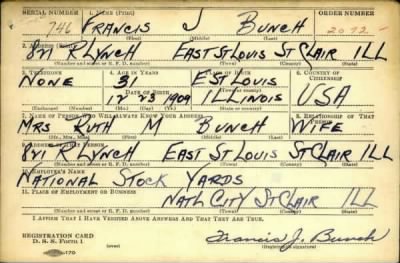 SERIAL NUMBER 1. NAME (Print) ORDER NUMBER
746 FRANCIS J BUNCH 2092
(First) (Middle) (Last)
2. ADDRESS (Print)
841 R LYNCH EAST ST LOUIS ST CLAIR ILL
(Number and street or R. F. D. number) (Town) (County) (State)
3. TELEPHONE 4. AGE IN YEARS 5. PLACE OF BIRTH 6. COUNTRY OF CITIZENSHIP
NONE 31 E ST LOUIS
DATE OF BIRTH
23 1909 ILLINOIS USA
(Exchange) (Number) (Mo.) (Day) (Yr.) (State or country)
7. NAME OF PERSON WHO WILL ALWAYS KNOW YOUR ADDRESS 8. RELATIONSHIP OF THAT PERSON
MRS RUTH M BUNCH WIFE
(Mr., Mrs., Miss) (First) (Middle) (Last)
9. ADDRESS OF THAT PERSON
841 R LYNCH EAST ST LOUIS ST CLAIR ILL
(Number and street or R. F. D. number) (Town) (County) (State)
10. EMPLOYER'S NAME
NATIONAL STOCK YARDS
11. PLACE OF EMPLOYMENT OR BUSINESS
NATL CITY ST CLAIR ILL
(Number and street or R. F. D. number) (Town) (County) (State)
I AFFIRM THAT I HAVE VERIFIED ABOVE ANSWERS AND THAT THEY ARE TRUE.
REGISTRATION CARD
D. S. S. Form 1 Francis J. Bunch
(Registrant's signature)